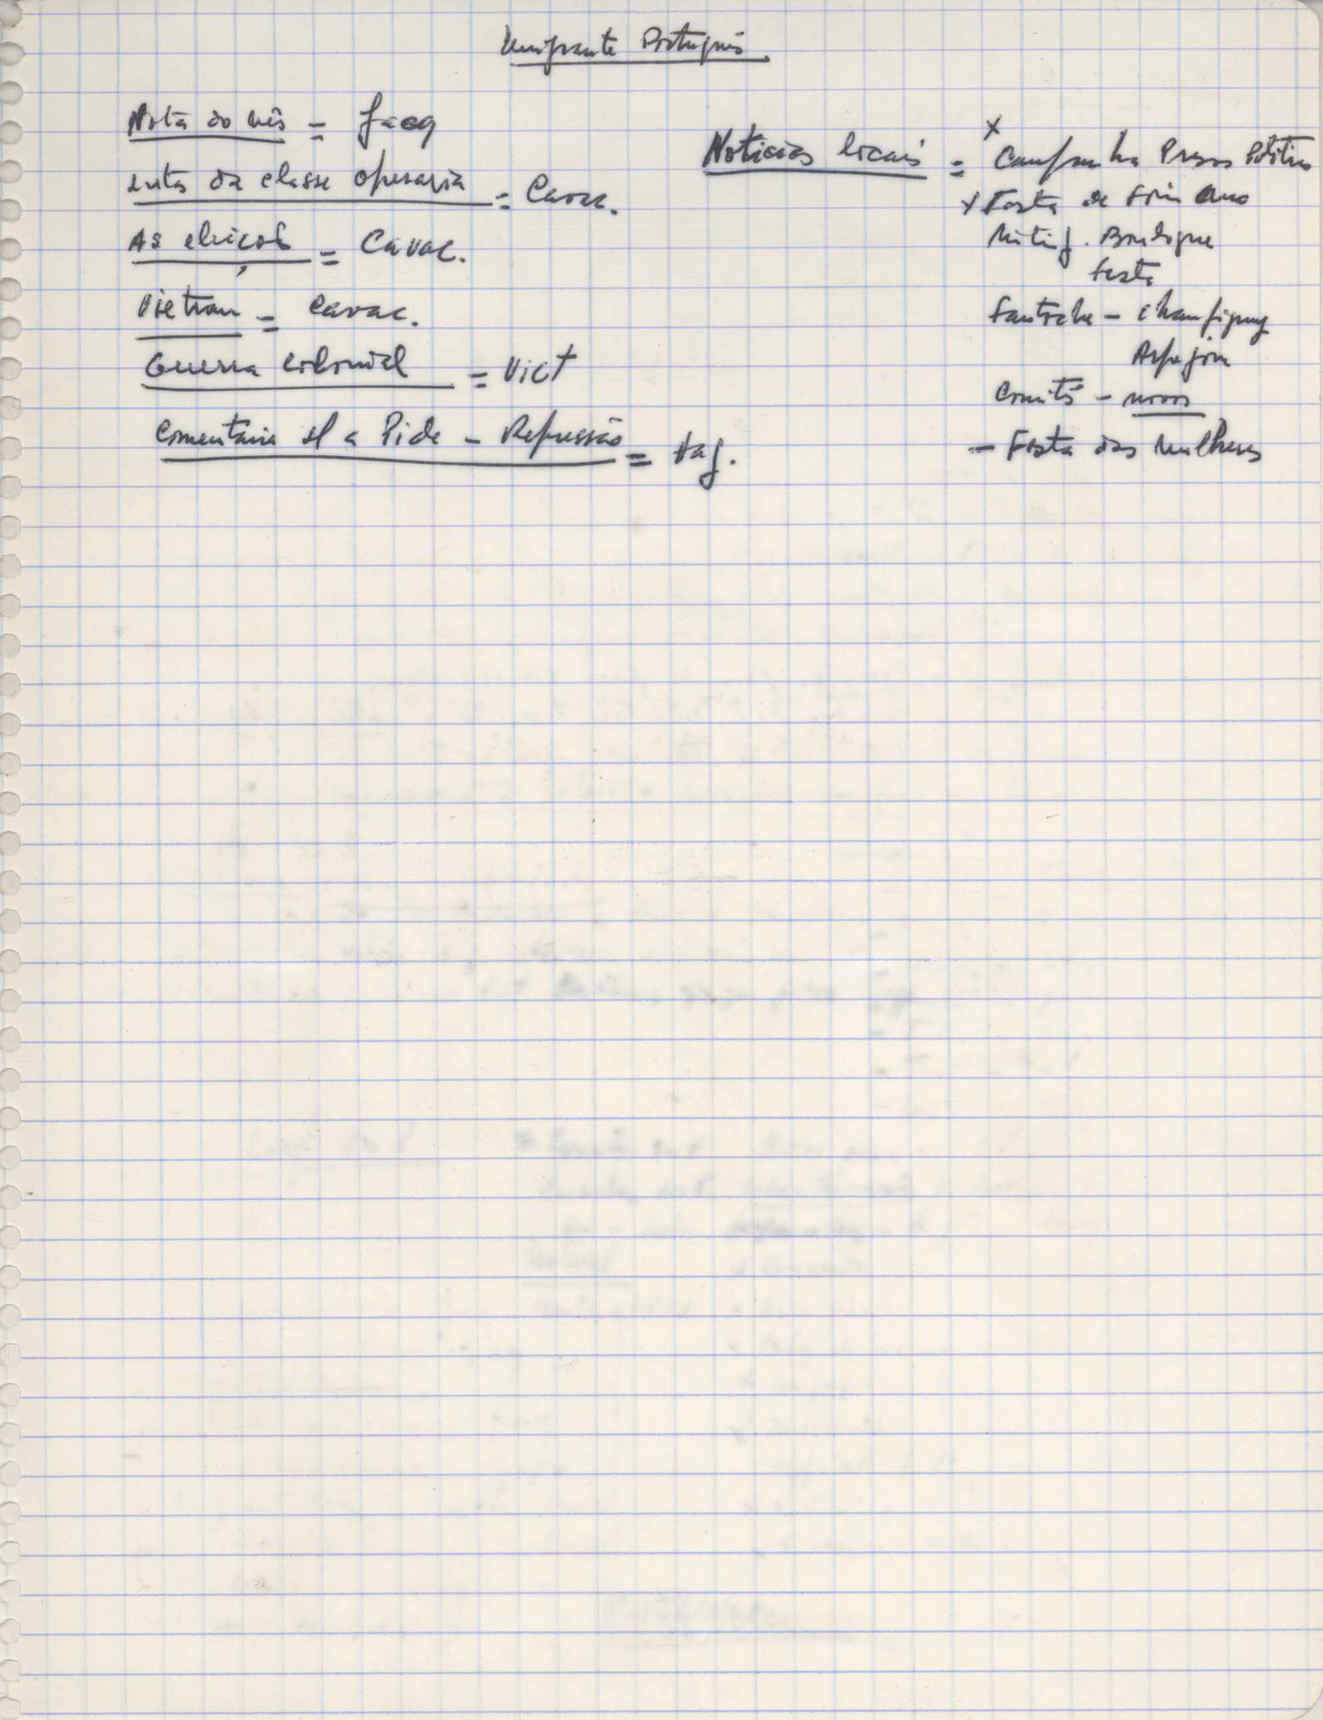 Emigrante Português
Nota do mês = Jacq
Lutas da classe operaria = Cavac.
As eleições = Cavac.
Vietnam = Cavac.
Guerra colonial = Vict
Comentario s/ a Pide - Repressão = Hag.
Noticias locais = x Campanha Presos Politicos
x Festa de Fim Ano
Miting. Boulogne
Festa
- Champigny
Arpajon
Comité - novos
- Festa das Mulheres